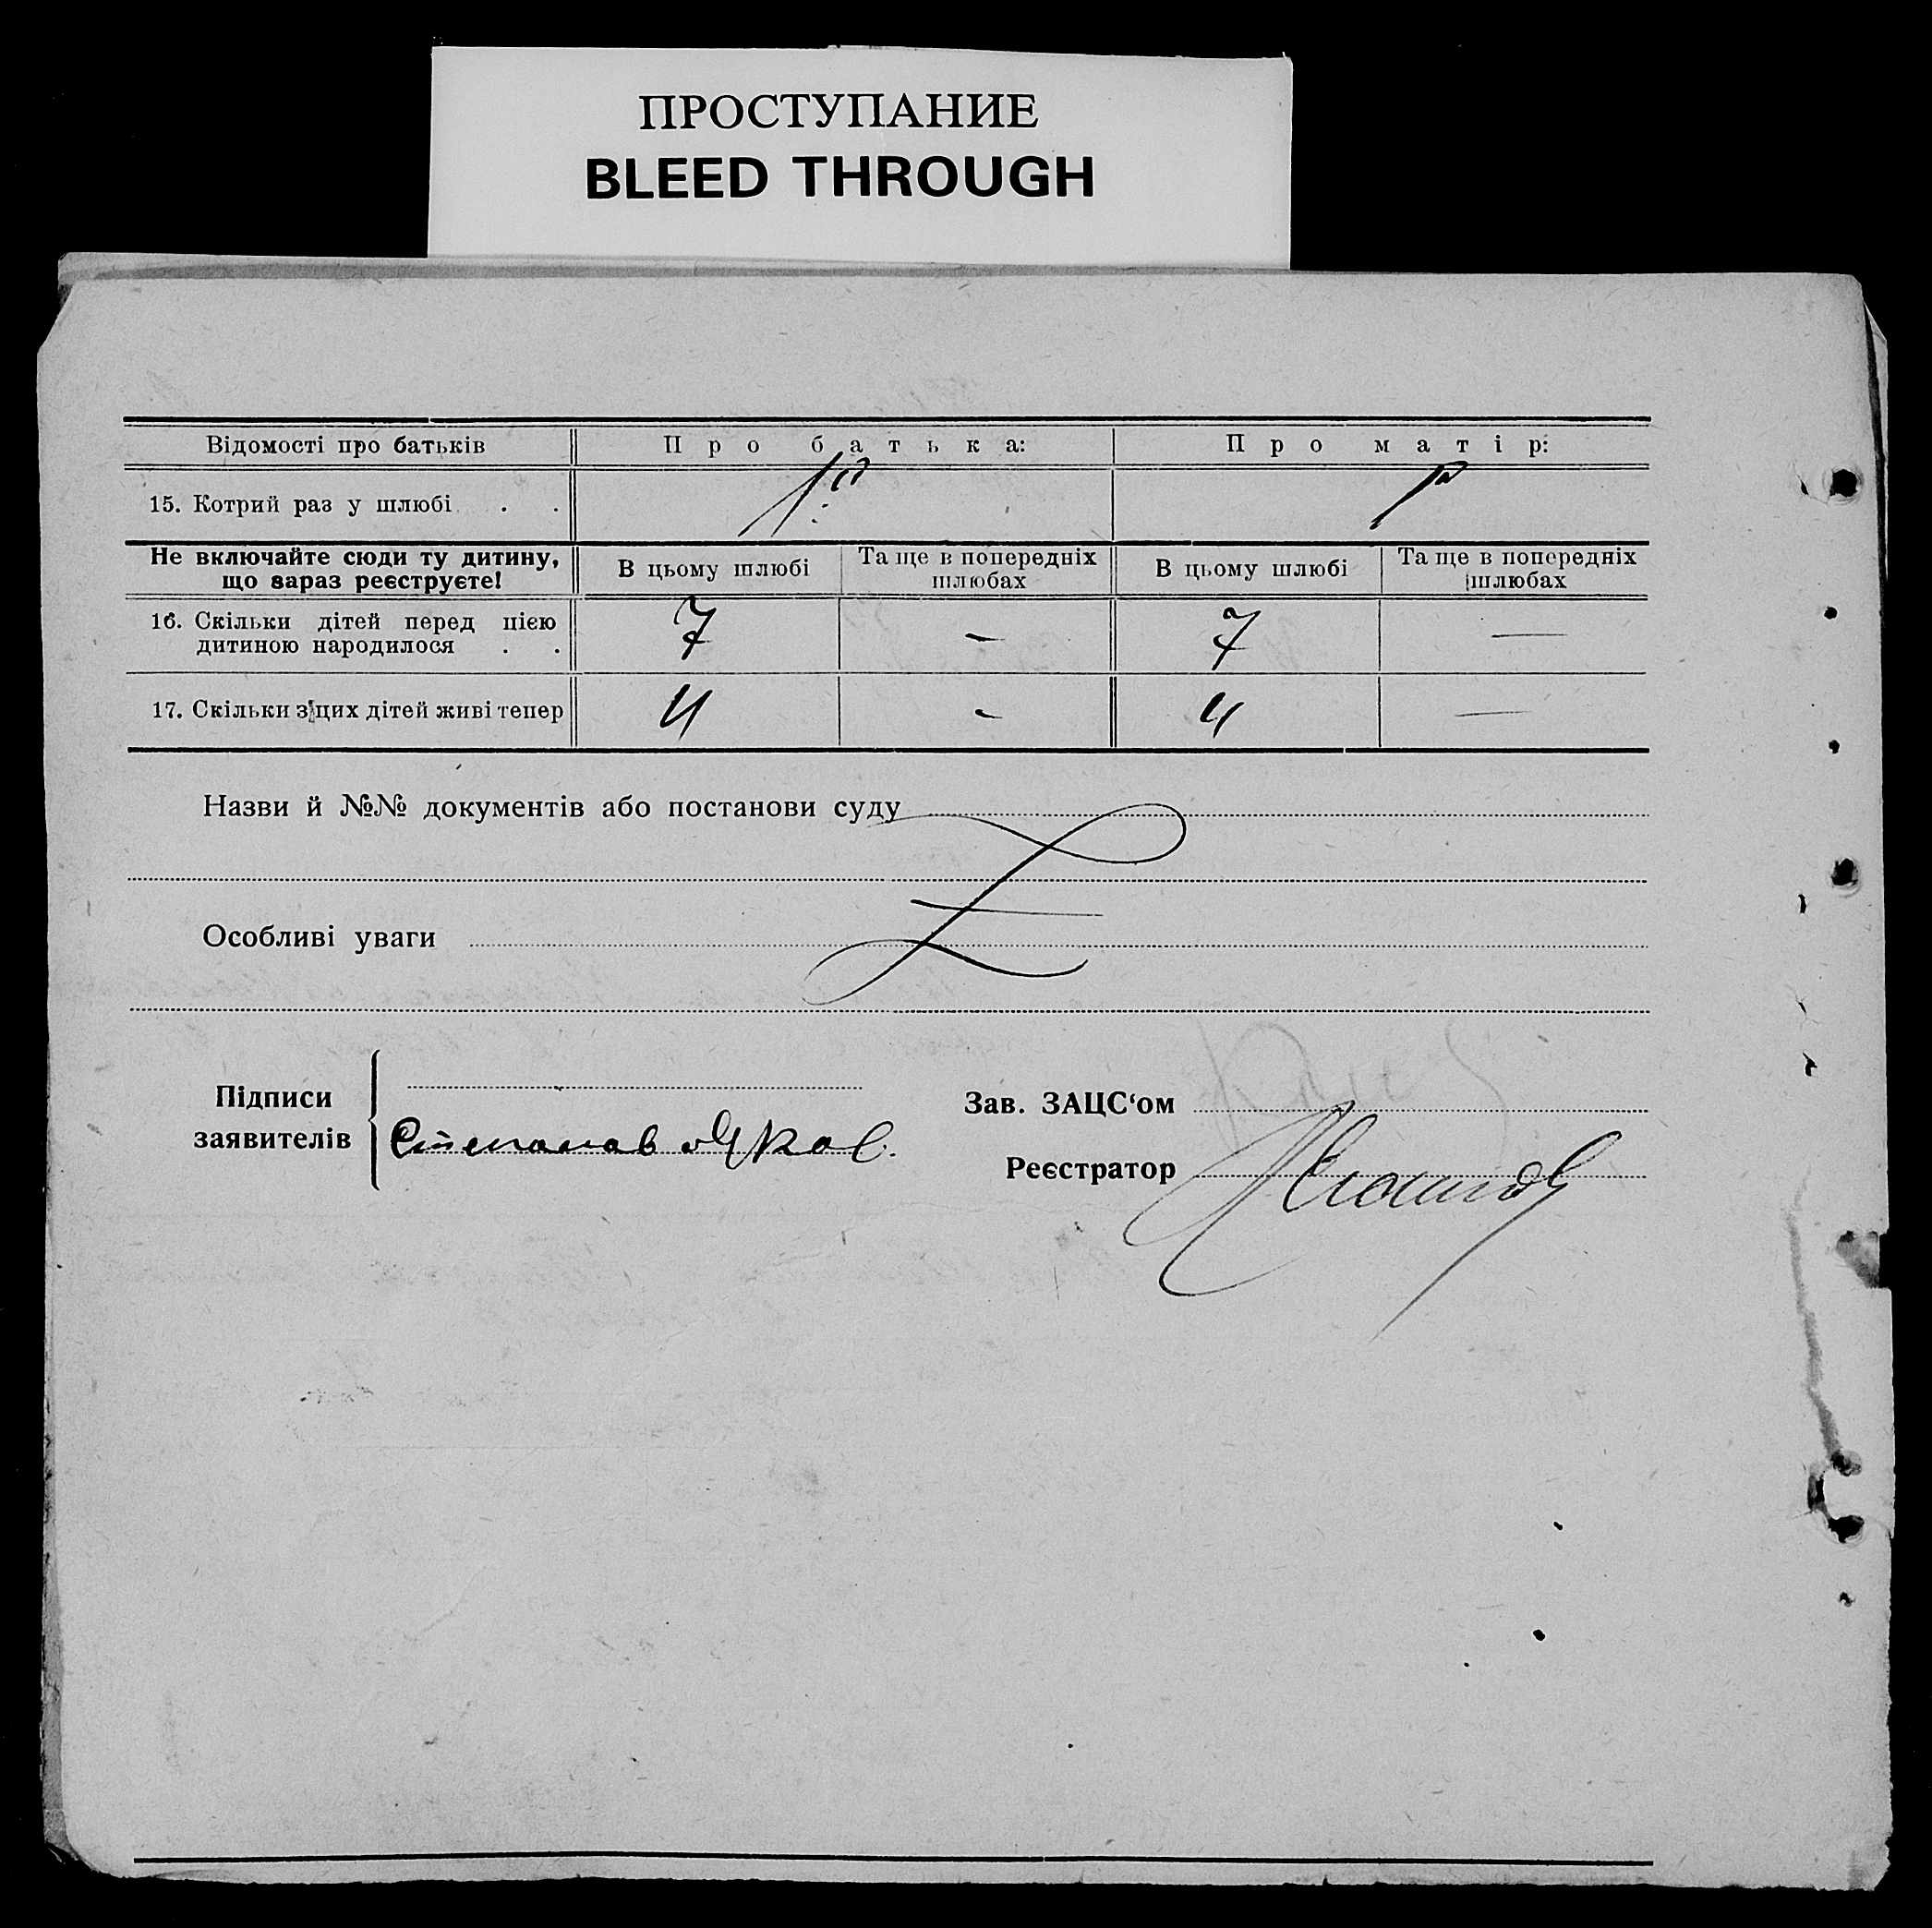 ПРОСТУПАНИЕ
BLEED THROUGH
Відомості про батьків Про батька: Про матір:
15. Котрий раз у шлюбі . .
Не включайте сюди ту дитину, що зараз реєструєте! В цьому шлюбі Та ще в попередніх шлюбах В цьому шлюбі Та ще в попередніх шлюбах
16. Скільки дітей перед цією дитиною народилося . . 7 - 7 —
17. Скільки з цих дітей живі тепер 4 - 4 —
Назви й №№ документів або постанови суду
Особливі уваги
Підписи заявителів Степанов
Зав. ЗАЦС‘ом
Реєстратор